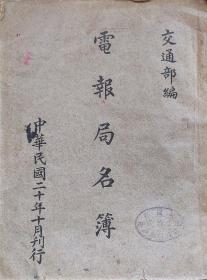 交通部編
電報局名簿
中華民國二十年十月刊行